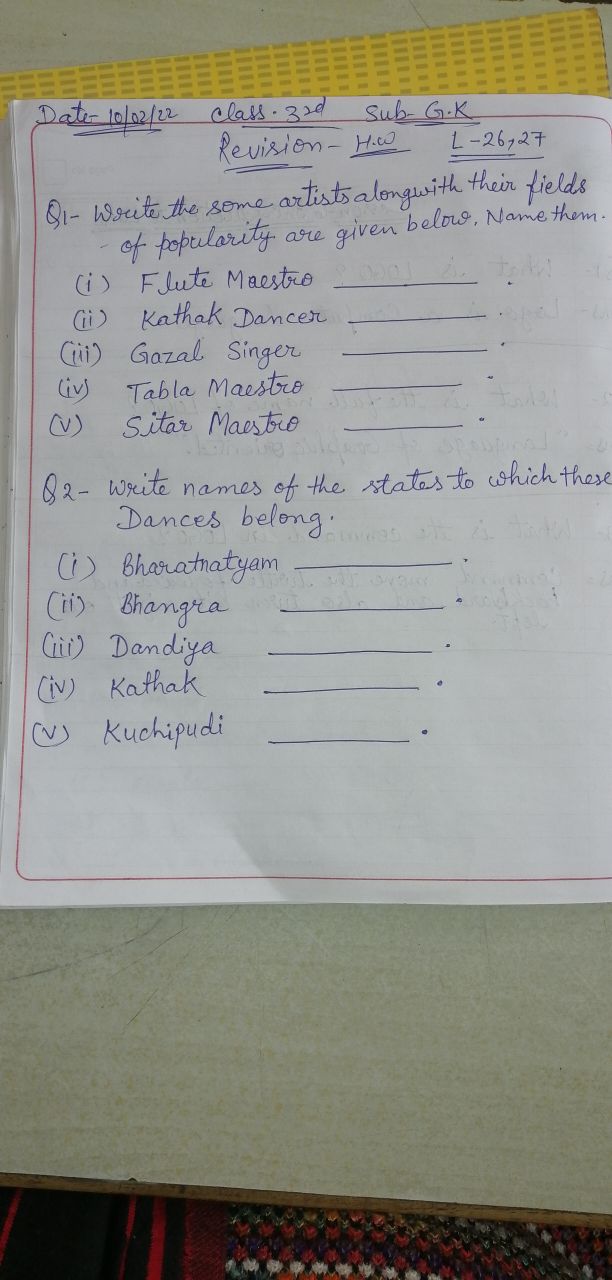 Date- 10/02/22 Class- 3rd Sub- G.K
Revision- H.W L-26,27
Q1- Write the some artists alongwith their fields
- of popularity are given below. Name them.
(i) Flute Maestro ________ .
(ii) Kathak Dancer ________ .
(iii) Gazal Singer ________ .
(iv) Tabla Maestro ________ .
(v) Sitar Maestro ________ .
Q2- Write names of the states to which these
Dances belong.
(i) Bharatnatyam ________ .
(ii) Bhangra ________ .
(iii) Dandiya ________ .
(iv) Kathak ________ .
(v) Kuchipudi ________ .